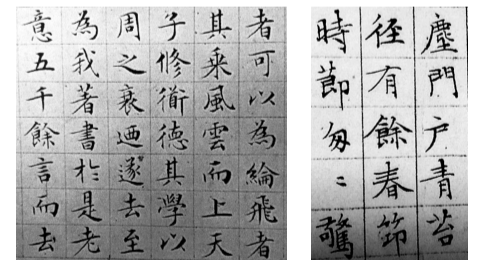 者可以為綸飛者
其乘風雲而上天
子修衜德其學以
周之衰迺遂去至
為我著書於是老
意五千餘言而去
塵門户青苔
径有餘春
時莭匆〻驚